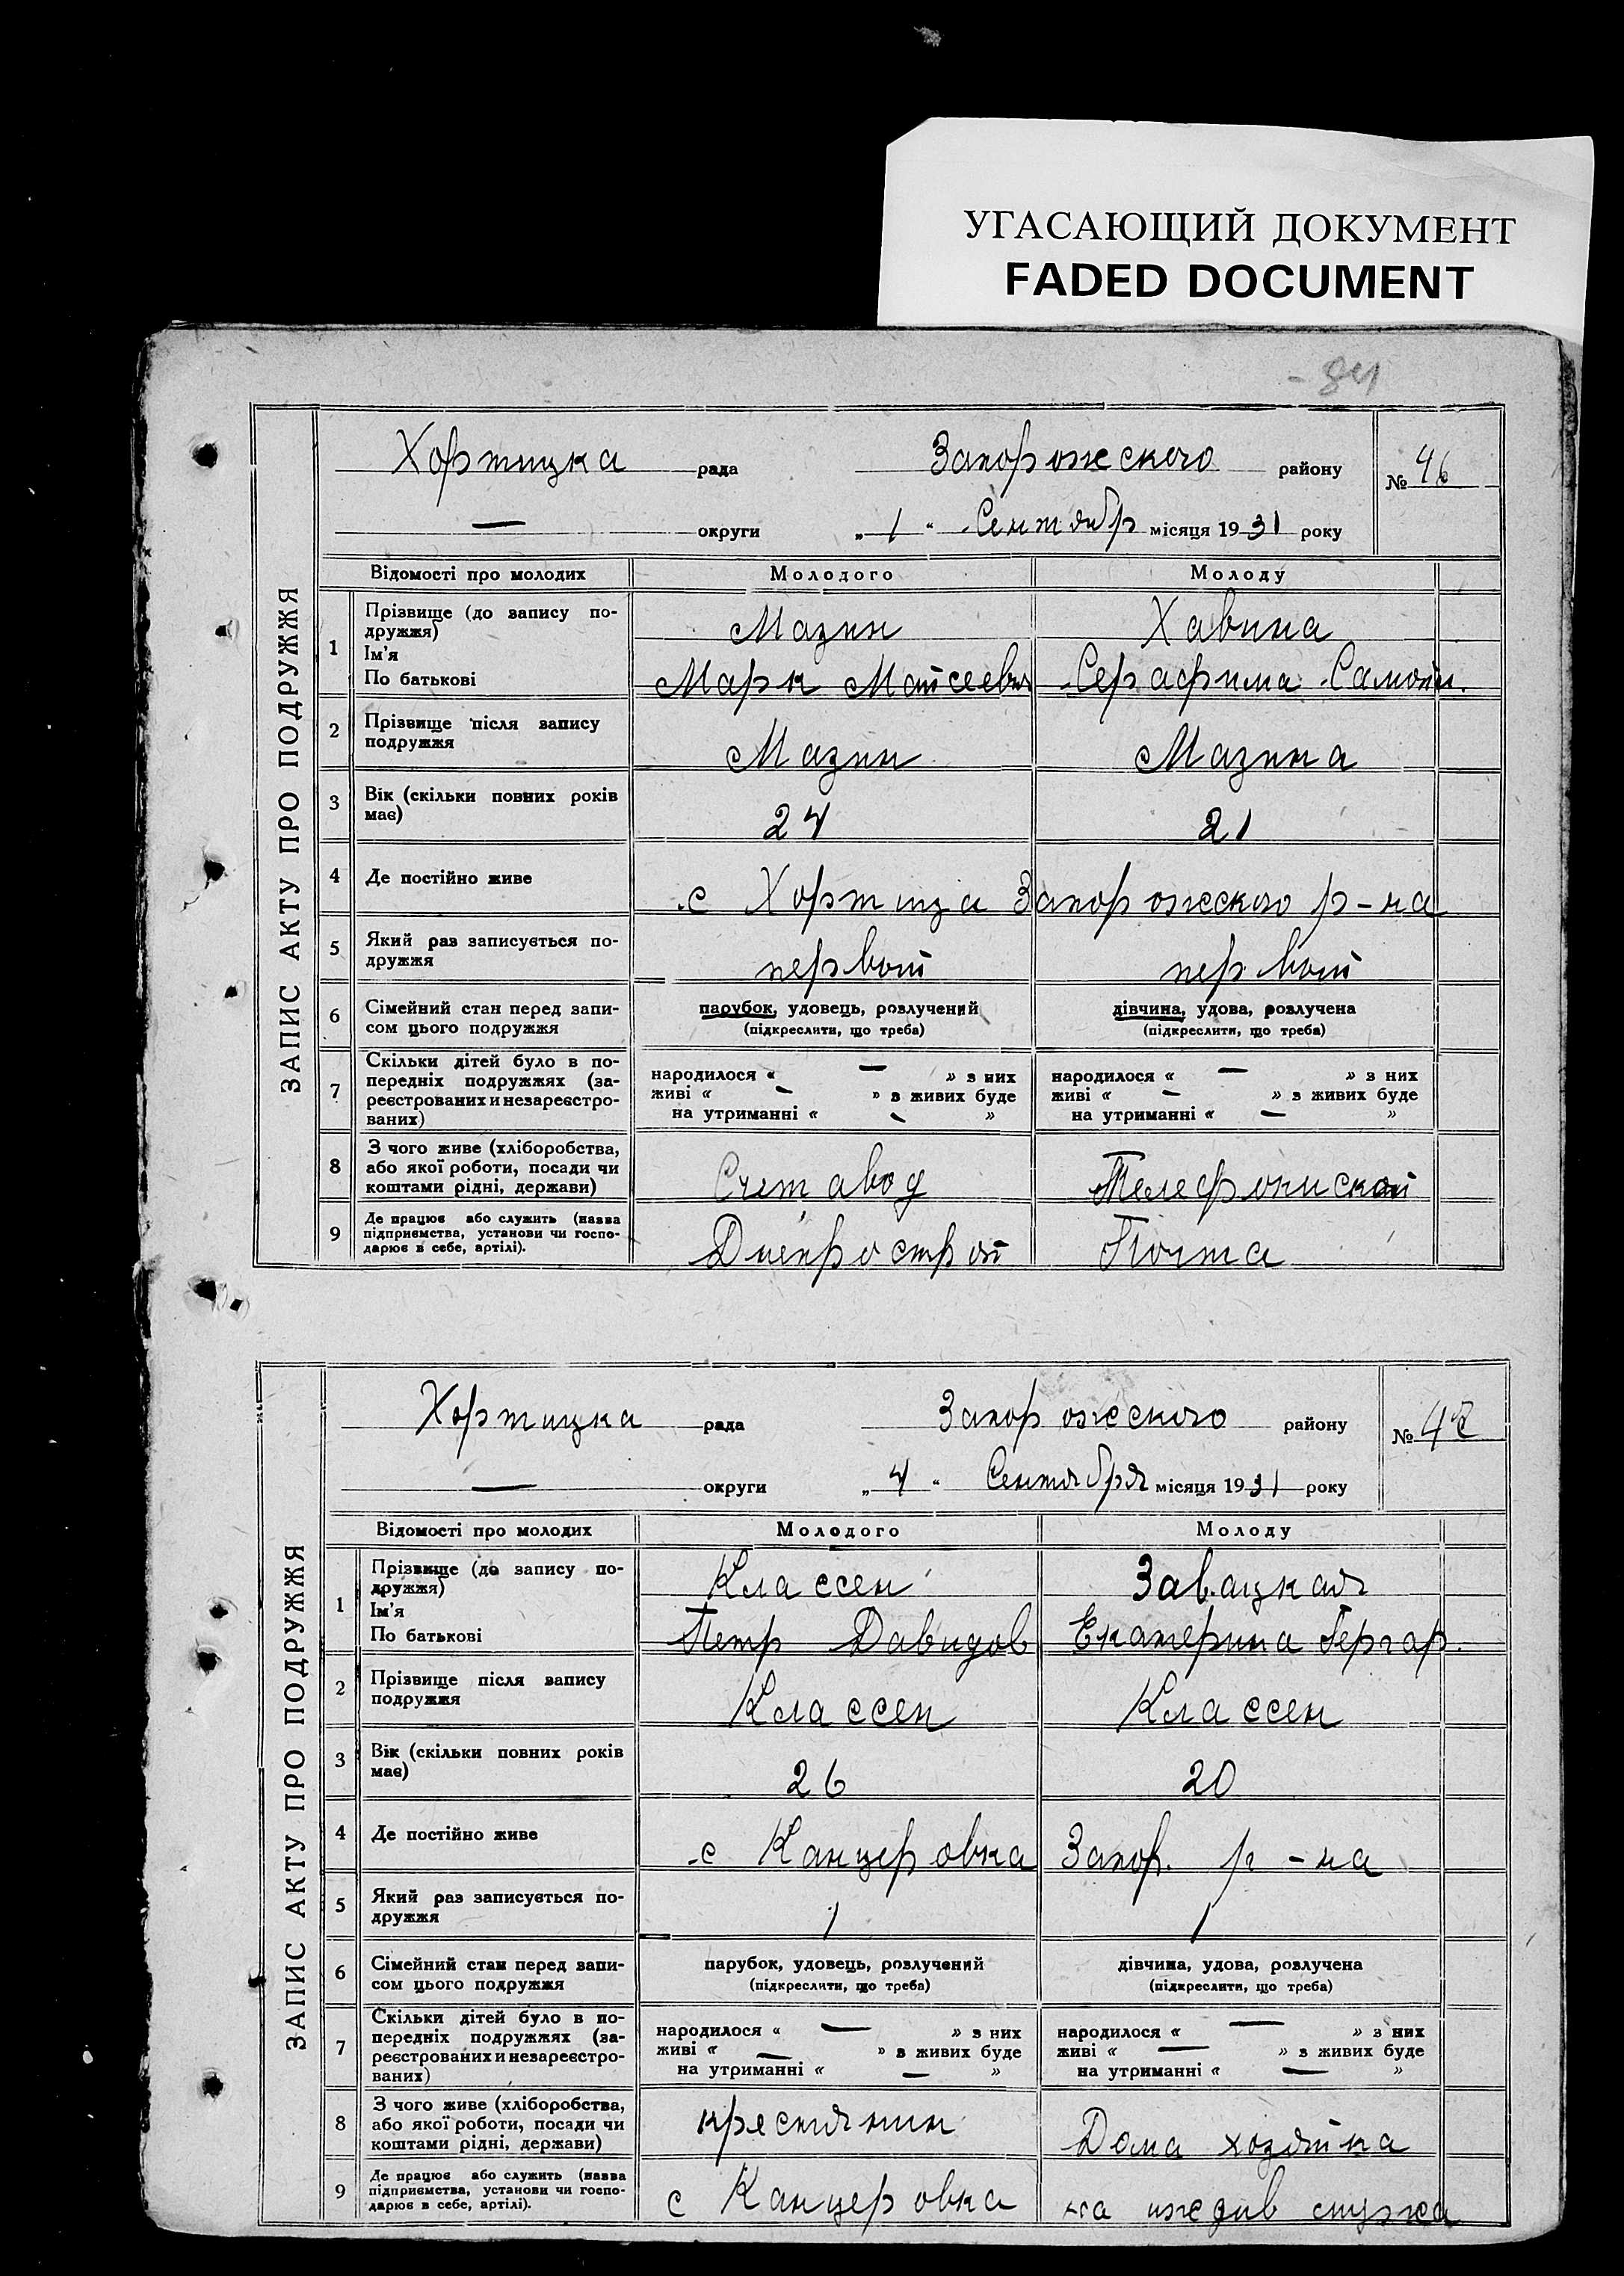 УГАСАЮЩИЙ ДОКУМЕНТ
FADED DOCUMENT
- 84
ЗАПИС АКТУ ПРО ПОДРУЖЖЯ
Хортицка рада Запорожского району № 46
— округи „ 1 “ Сентябр місяця 1931 року
Відомості про молодих Молодого Молоду
1 Прізвище (до запису по-
дружжя) Мазин Хавина
Ім'я
По батькові Марк Мойсеевич Серафима Самойл.
2 Прізвище після запису
подружжя Мазин Мазина
3 Вік (скільки повних років
має) 24 21
4 Де постійно живе с Хортица Запорожского р-на
5 Який раз записується по-
дружжя первый первый
6 Сімейний стан перед запи- парубок, удовець, розлучений дівчина, удова, розлучена
сом цього подружжя (підкреслити, що треба) (підкреслити, що треба)
7 Скільки дітей було в по-
передніх подружжях (за- народилося « — » з них народилося « — » з них
реєстрованих и незареєстро- живі « — » в живих буде живі « — » в живих буде
ваних) на утриманні « — » на утриманні « — »
8 З чого живе (хліборобства,
або якої роботи, посади чи
коштами рідні, держави) Счетавод
9 Де працює або служить (назва
підприємства, установи чи госпо-
дарює в себе, артілі). Днепрострой Почта
ЗАПИС АКТУ ПРО ПОДРУЖЖЯ
Хортицка рада Запорожского району № 47
— округи „ 4 “ Сентября місяця 1931 року
Відомості про молодих Молодого Молоду
1 Прізвище (до запису по-
дружжя) Классен Завацкая
Ім'я
По батькові Петр Давидов Екатерина Гергар.
2 Прізвище після запису
подружжя Классен Классен
3 Вік (скільки повних років
має) 26 20
4 Де постійно живе с Канцеровка Запор. р-на
5 Який раз записується по-
дружжя 1 1
6 Сімейний стан перед запи- парубок, удовець, розлучений дівчина, удова, розлучена
сом цього подружжя (підкреслити, що треба) (підкреслити, що треба)
7 Скільки дітей було в по-
передніх подружжях (за- народилося « — » з них народилося « — » з них
реєстрованих и незареєстро- живі « — » в живих буде живі « — » в живих буде
ваних) на утриманні « — » на утриманні « — »
8 З чого живе (хліборобства,
або якої роботи, посади чи
коштами рідні, держави) крестянин Дома хозяйка
9 Де працює або служить (назва
підприємства, установи чи госпо-
дарює в себе, артілі). с Канцеровка на иждив мужа